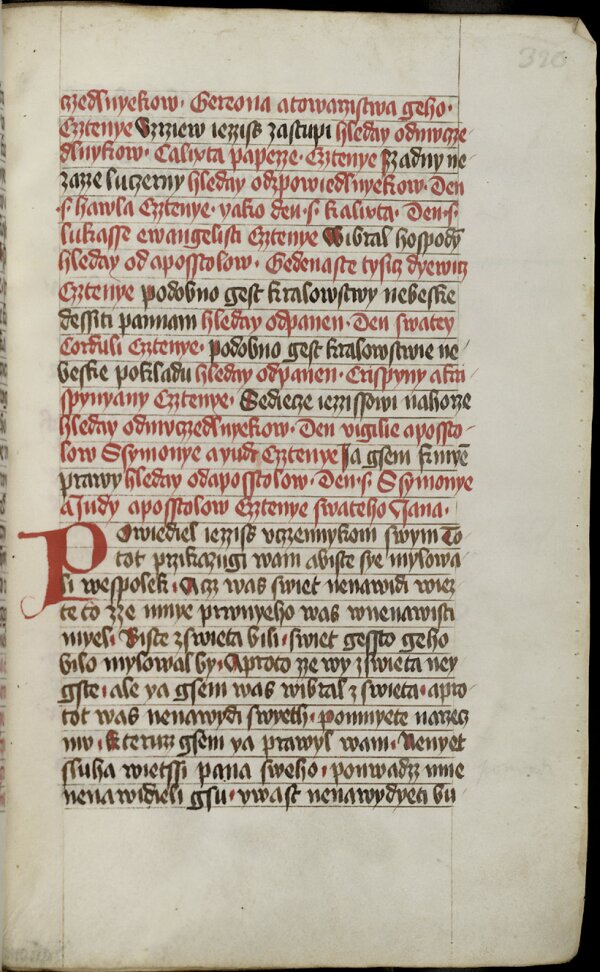 320
czedlnyekow · Gereona a towarzistwa geho ·
Cztenye Vzrziew iezziss zastupi hleday odmvcze
dlnykow · Calixta papeze · Cztenye Zzadny ne
zazze luczerny hleday odzpowiedlnyekow · Den
· s · hawla Cztenye · yako den · s · kalixta · Den · s ·
lukasse ewangelisti Cztenye Wibral hospodyn
hleday od aposstolow · Gedenaste tysicz dyewicz
Cztenye podobno gest kralowstwy nebeske
dessiti pannam hleday odpanen · Den swatey
Corduli Cztenye · podobno gest kralowstwie ne
beske pokladu hleday odpanen · Crispyny a kri
spynyany Cztenye · Sediecze iezzissowi nahorze
hleday odmvczedlnyekow · Den vigilie aposto
low Ssymonye a yudi Cztenye Ja gsem kmyen
prawy hleday odaposstolow · Den · s · Ssymonye
a Judy aposstolow Cztenye swateho Jana ·
Powiediel iezziss vczennykom swym To
tot przikazugi wam abiste sye mylowa
li wespolek · Acz was swiet nenawidi wiez
te to zze mnye prwnyeho was wnenawisti
myel · Biste zswieta bili · swiet gessto geho
bilo mylowal by · Aproto zze wy zswieta ney
gste · ale ya gsem was wibral z swieta · apro
tot was nenawydi swyeth · pomnyete narzecz
mv · kteruz gsem ya prawyl wam · Nenyet
sluha wietssi pana sweho · ponwadz mne
nenawidieli gsu · ywast nenawydyeti bu